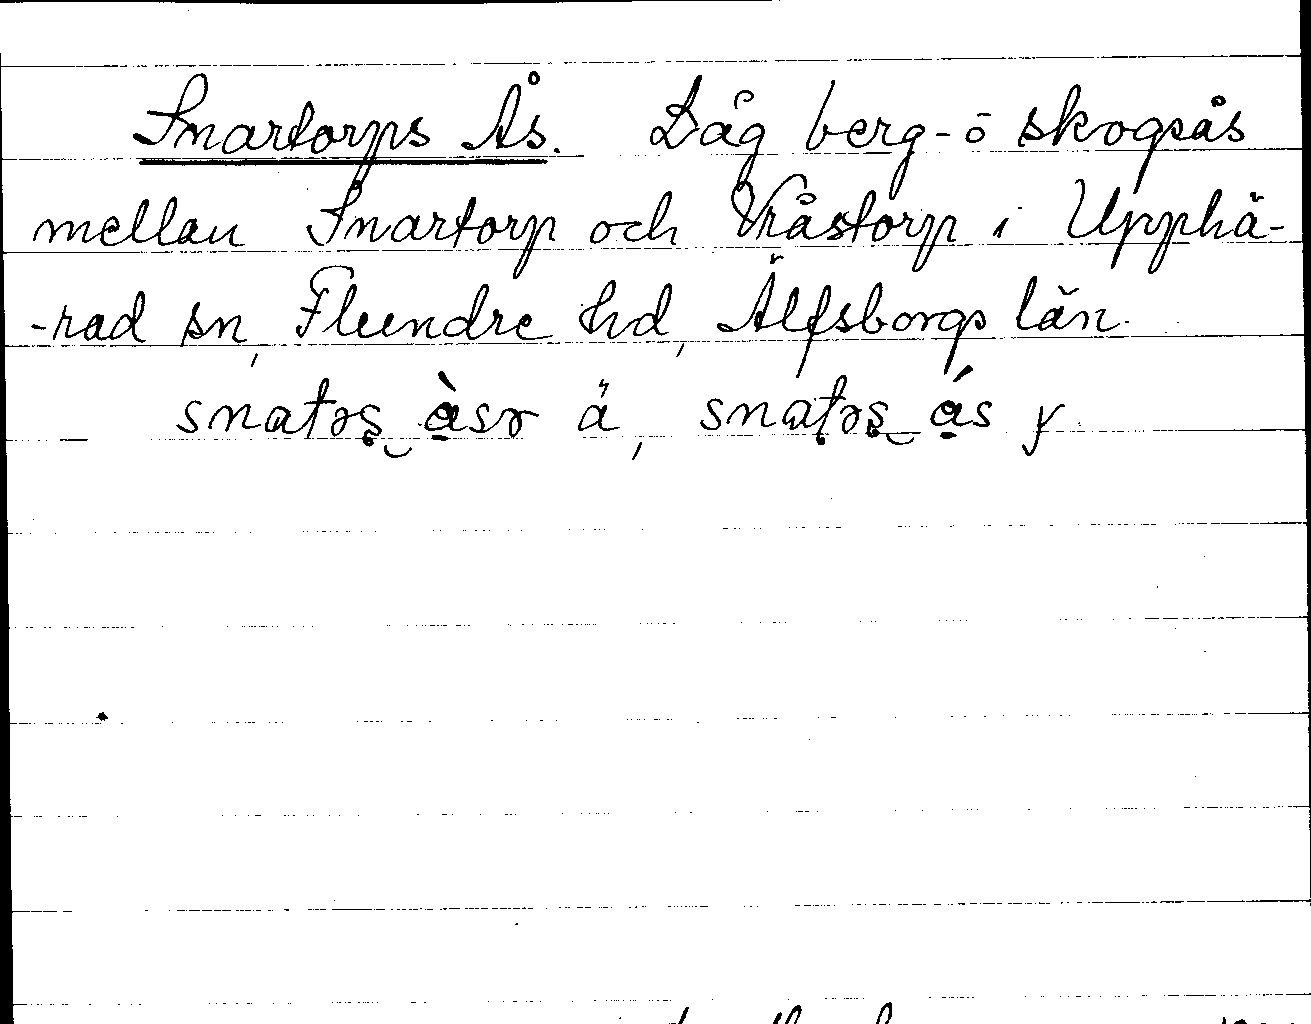 Snartorps Ås. Låg berg- o skogsås
mellan Snartorp och Vråstorp i Upphä-
-rad sn, Flundre hd, Älfsborgs län.
snatəş‿àsə ä, snaṭəş‿ás y.